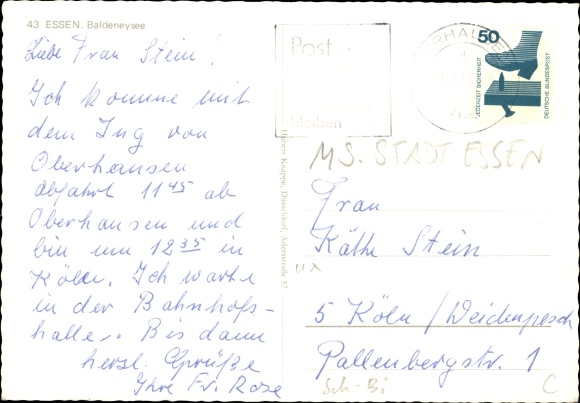 43 ESSEN. Baldeneysee
Liebe Frau Stein!
Ich komme mit
dem Zug von
Oberhausen
Abfahrt 11 45 ab
Oberhausen und
bin um 12 35 in
Köln. Ich warte
in der Bahnhofs-
halle. Bis dann
herzl. Grüße
Ihre Fr. Rose
Hubert Knippe, Düsseldorf, Adersstraße 57
Post
bleiben
50
JEDERZEIT SICHERHEIT
DEUTSCHE BUNDESPOST
MS. STADT ESSEN
Frau
Käthe Stein
5 Köln / Weidenpesch
Pallenbergstr. 1
Sch-Bi
C